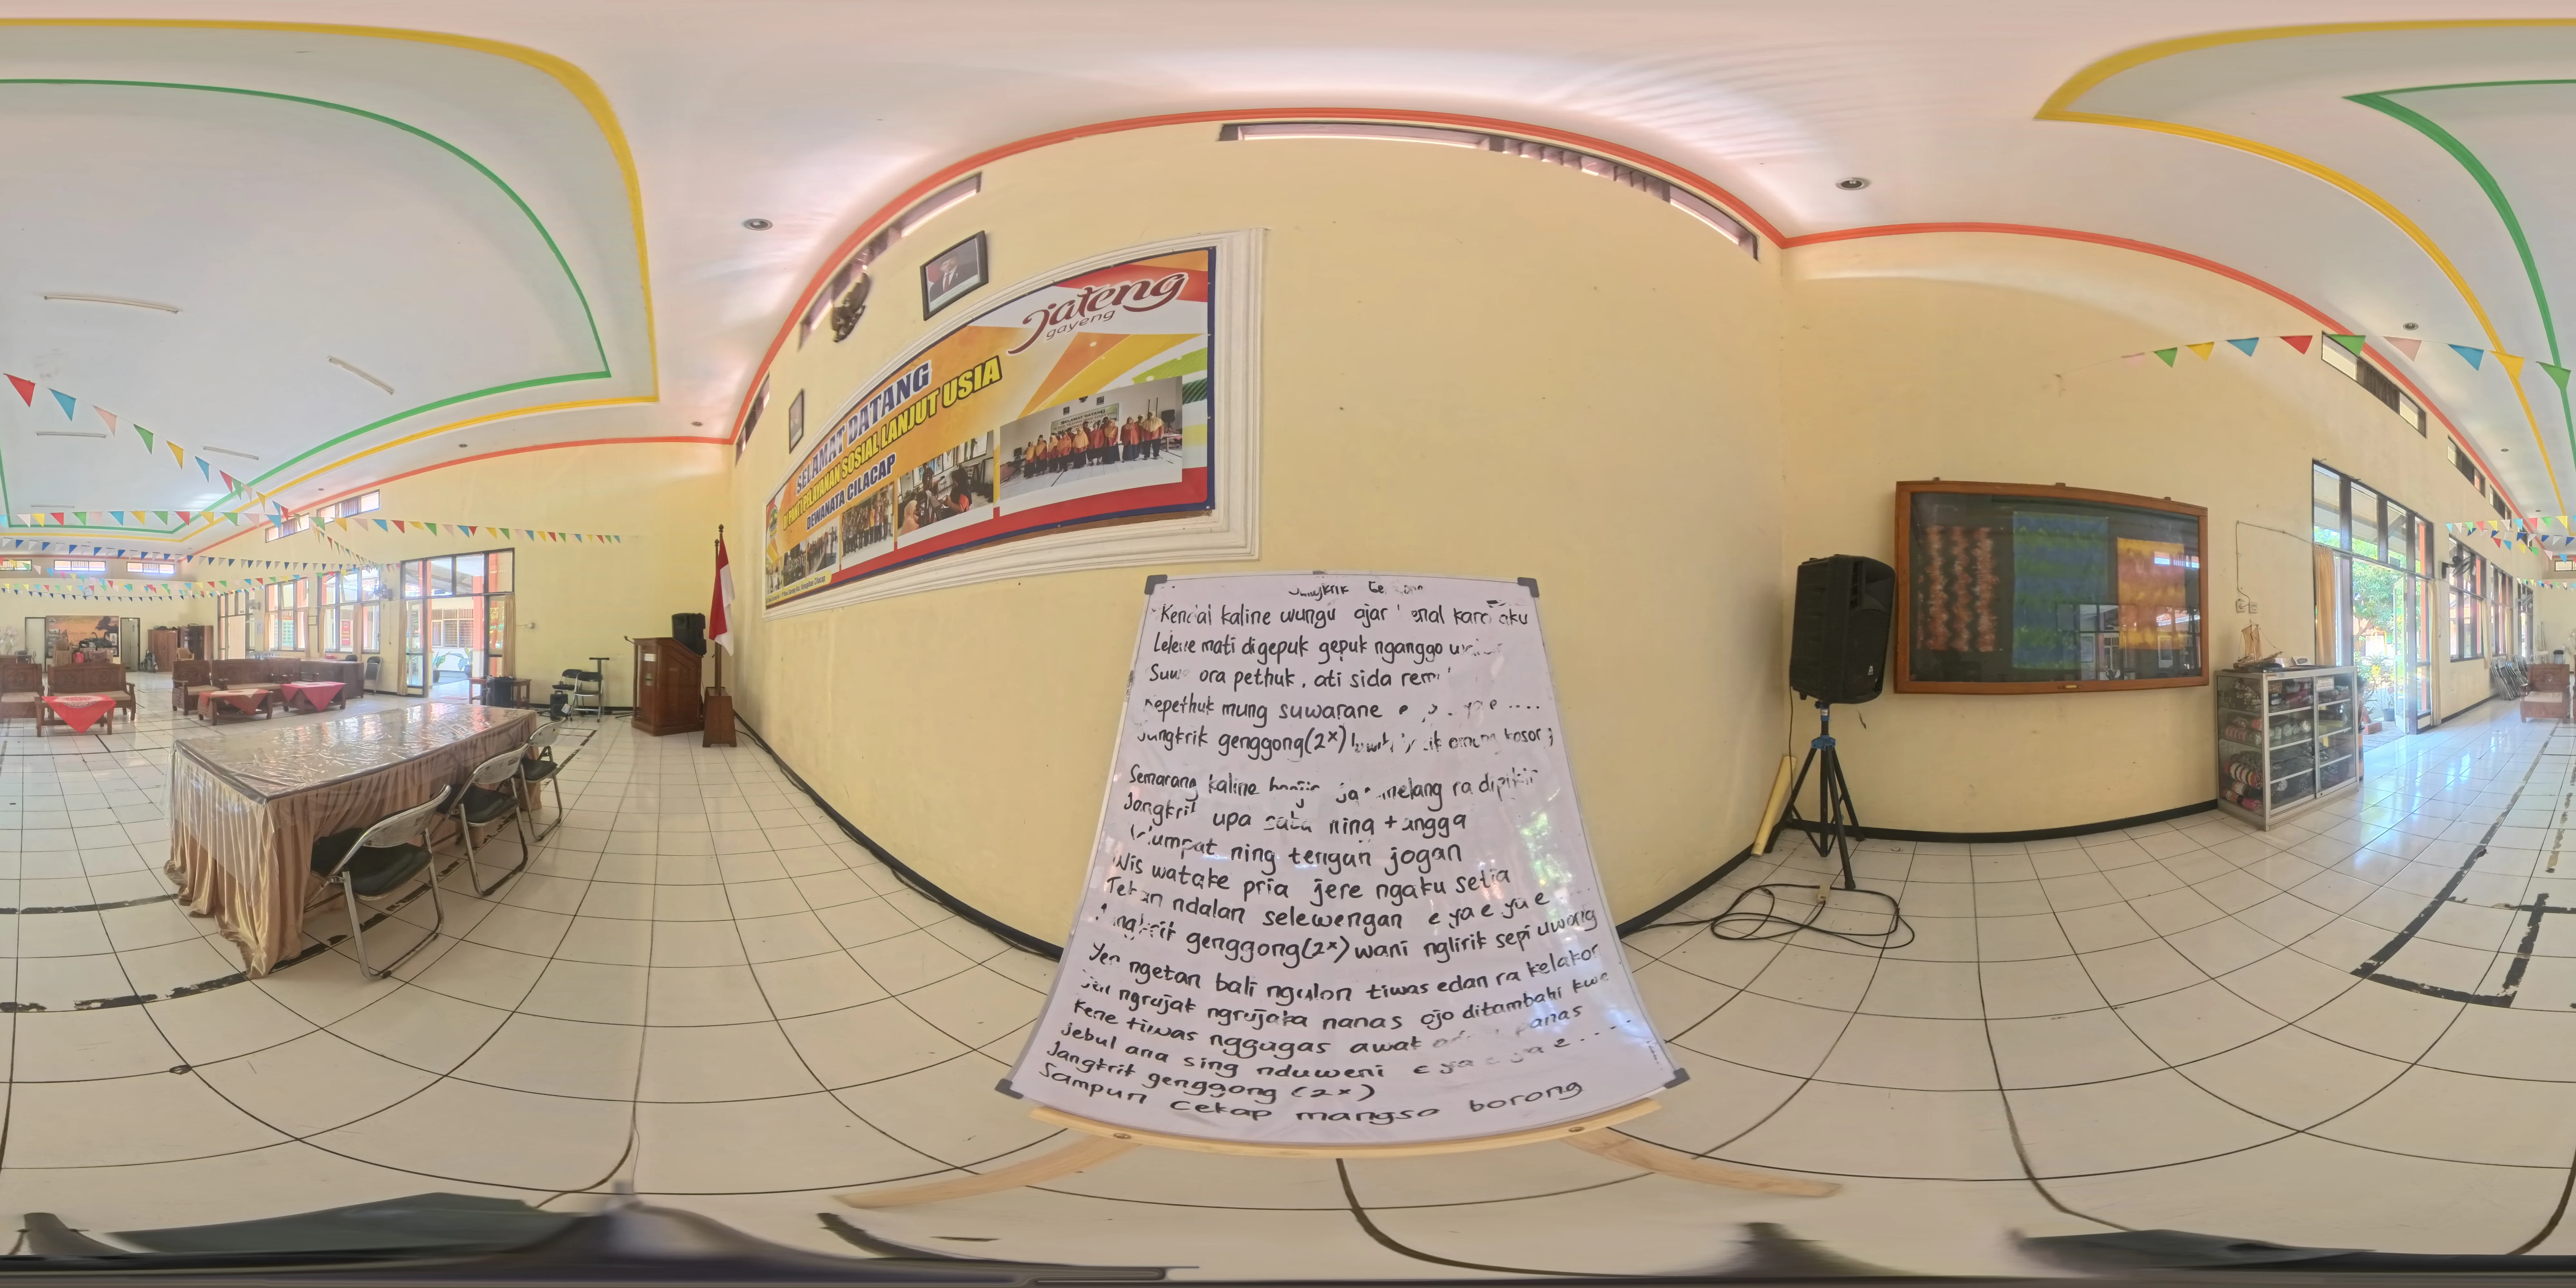 jateng
gayeng
SELAMAT DATANG
DI PANTI PELAYANAN SOSIAL LANJUT USIA
DEWANATA CILACAP
Kendal kaline wungu ajar kenal karo aku
Lelene mati digepuk gepuk nganggo
Suwe ora pethuk, ati sida
Kepethuk mung suwarane
Jangkrik genggong (2x)
Semarang kaline banjir ja sumelang ra dipikir
Jangkrik upa saba ning tangga
Mlumpat ning tengah jogan
Wis watake pria jere ngaku setia
Tekan ndalan selewengan e ya e ya e
Jangkrik genggong (2x) wani nglirik sepi uwong
Yen ngetan bali ngulon tiwas edan ra kelakon
Yen ngrujak ngrujaka nanas ojo ditambahi kwe
Kene tiwas nggagas awak panas
Jebul ana sing nduweni e ya e ya e ....
Jangkrik genggong (2x)
Sampun cekap mangso borong